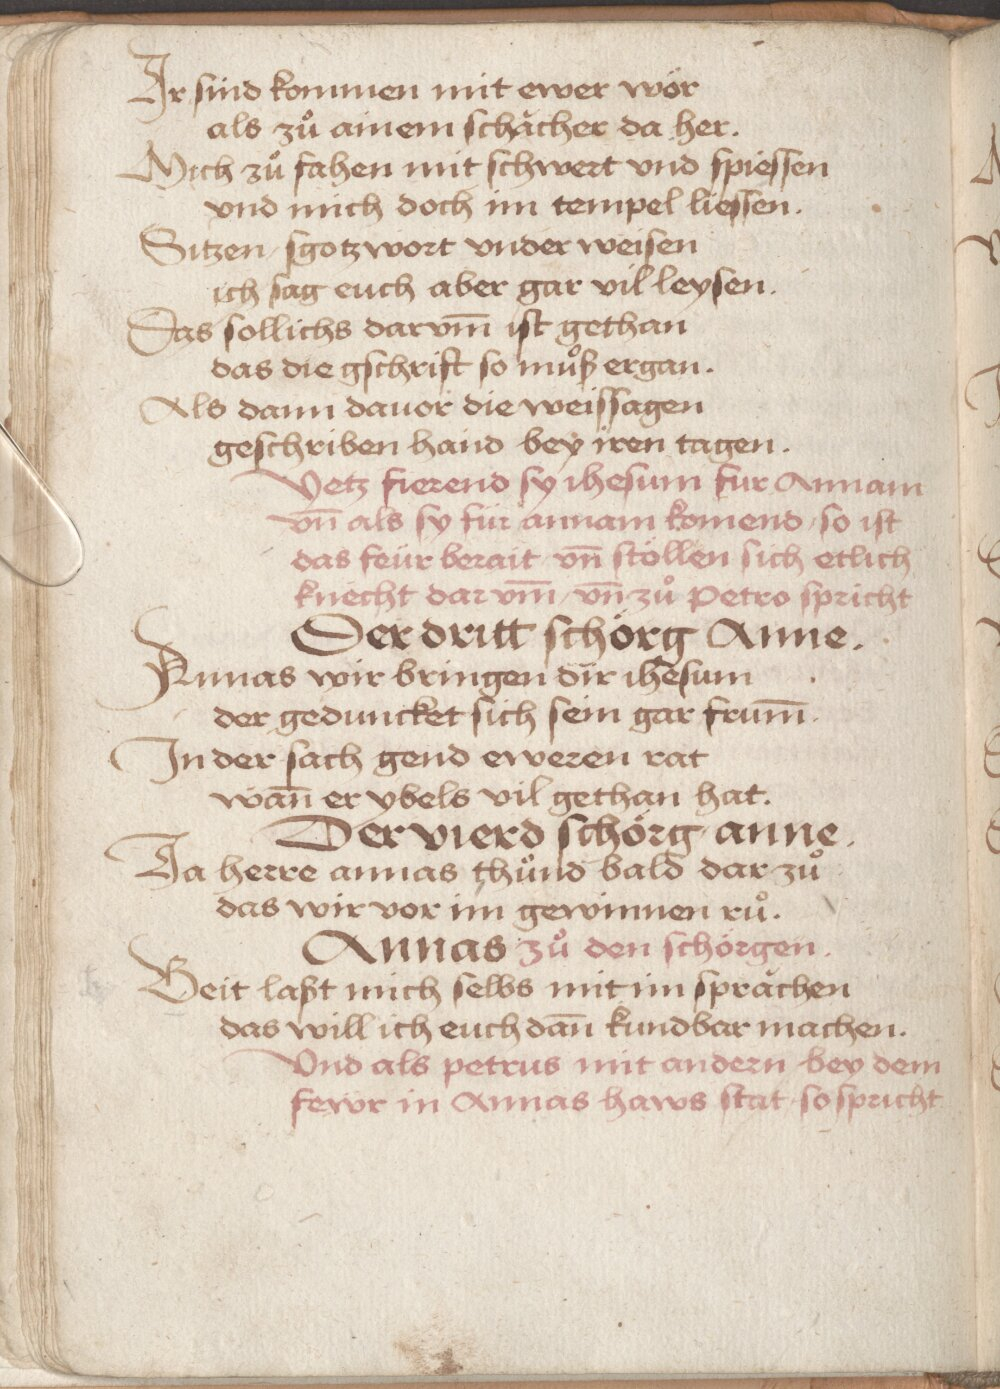 Ir sind kommen mit ewer wör
als zů ainem schächer da her.
Mich zů fahen mit schwert vnd spiessen
vnd mich doch im tempel liessen.
Sitzen / sgotzwort vnder weisen
ich sag euch aber gar vil leysen.
Das sollichs darvm̄ ist gethan
das die gschrift so můß ergan.
Als dann davor die weissagen
geschriben hand bey iren tagen.
Yetz fierend sy ihesum fur Annam
vn̄ als sy für annam komend / so ist
das feür berait / vn̄ stöllen sich etlich
knecht dar vm̄ / vn̄ zů Petro spricht
Der dritt schörg Anne.
Annas wir bringen dir ihesum
der geduncket sich sein gar frum̄.
In der sach gend eweren rat
wān er ybels vil gethan hat.
Der vierd schörg anne.
Ja herre annas thůnd bald dar zů
das wir vor im gewinnen rů.
Annas zů den schörgen.
Beit laßt mich selbs mit im sprächen
das will ich euch dān kundbar machen.
Vnd als petrus mit andern bey dem
fewr in Annas haws stat / so spricht